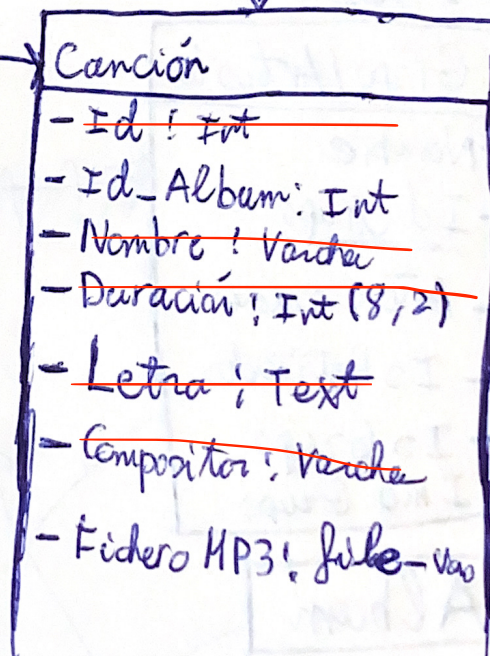 Canción
- Id : Int
- Id_Album: Int
- Nombre : Varcha
- Duración : Int (8,2)
- Letra : Text
- Compositor : Varcha
- Fichero MP3: file-